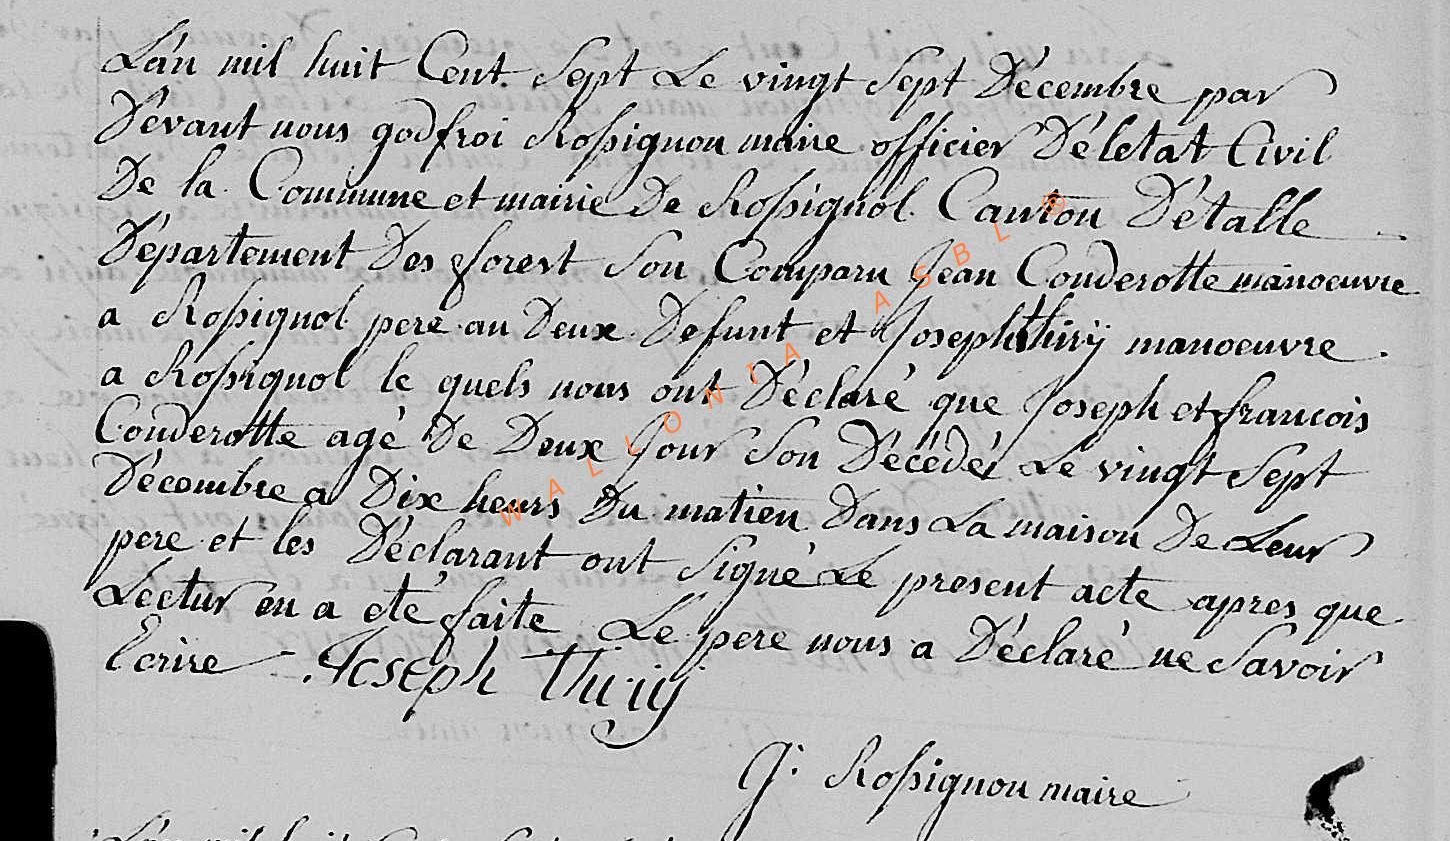 L'an mil huit Cent Sept Le vingt Sept Décembre par
Dévant nous godfroi Rossignon maire officier Déletat Civil
De la Commune et mairie De Rossignol Canton Détalle
Département Des forest Son Comparu Jean Conderotte manoeuvre
a Rossignol pere au Deux Defunt et Joseph thirÿ manoeuvre
a Rossignol le quels nous ont Déclaré que Joseph et francois
Conderotte agé De Deux Jour Son Décédéz Le vingt Sept
Décembre a Dix heurs Du matien Dans La maison De Leur
pere et les Déclarant ont Signé Le present acte apres que
Lectur en a eté faite Le pere nous a Déclaré ne Savoir
Ecrire Joseph Thirÿ
G: Rossignon maire
WALLONIA ASBL ®